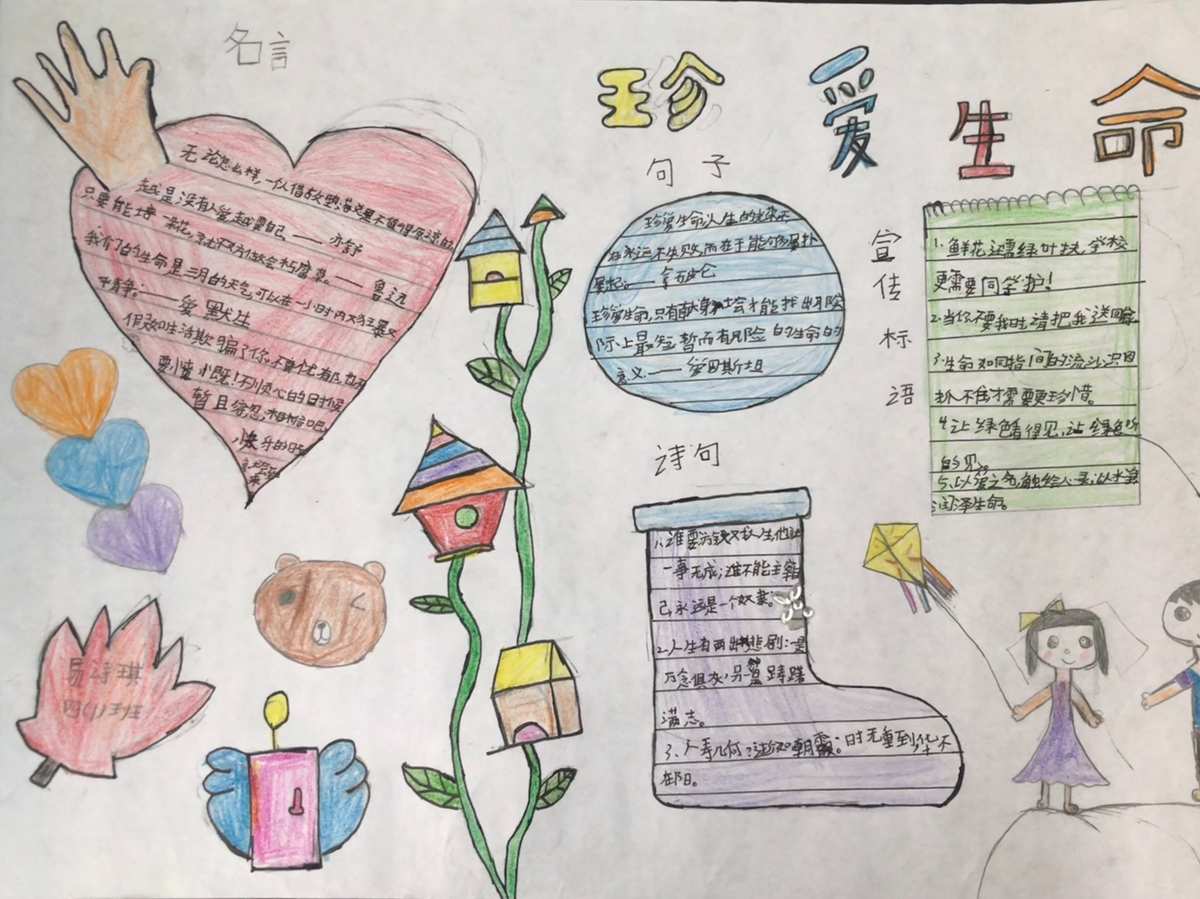 名言
珍爱生命
无论怎么样,一个人借故堕落总是不值得原谅的
越是没有人爱越要爱自己——亦舒
只要能培一朵花,不妨做会朽腐草——鲁迅
我们的生命是三月的天气,可以在一小时内又狂暴又
平静。——爱默生
假如生活欺骗了你,不要
暂且容忍,相信吧
快乐的日
来
句子
珍爱生命人生的光荣不
在永运不失败,而在于能够屡扑
屡起。——拿破仑
珍爱生命,只有献身社会才能找出那险
际上最短暂而有风险的生命的
意义——爱因斯坦
宣传标语
1.鲜花还需绿叶扶,学校
更需要同学护!
2.当你不要我时,请把我送回家
3.生命如同指间的流沙,只因
抓不住才需要更珍惜。
4.让绿色看得见,让绿色听
的见。
5.以爱之名,触绘心灵,以水
润泽生命。
诗句
1.谁要游戏人生,他就
一事无成;谁不能主宰
己,永远是一个奴隶。
2.人生有两出悲剧:一是
万念俱灰,另一是踌躇
满志。
3.人寿几何?逝如朝霜。时无重到,华不
在阳。
易诗琪
四(1)班